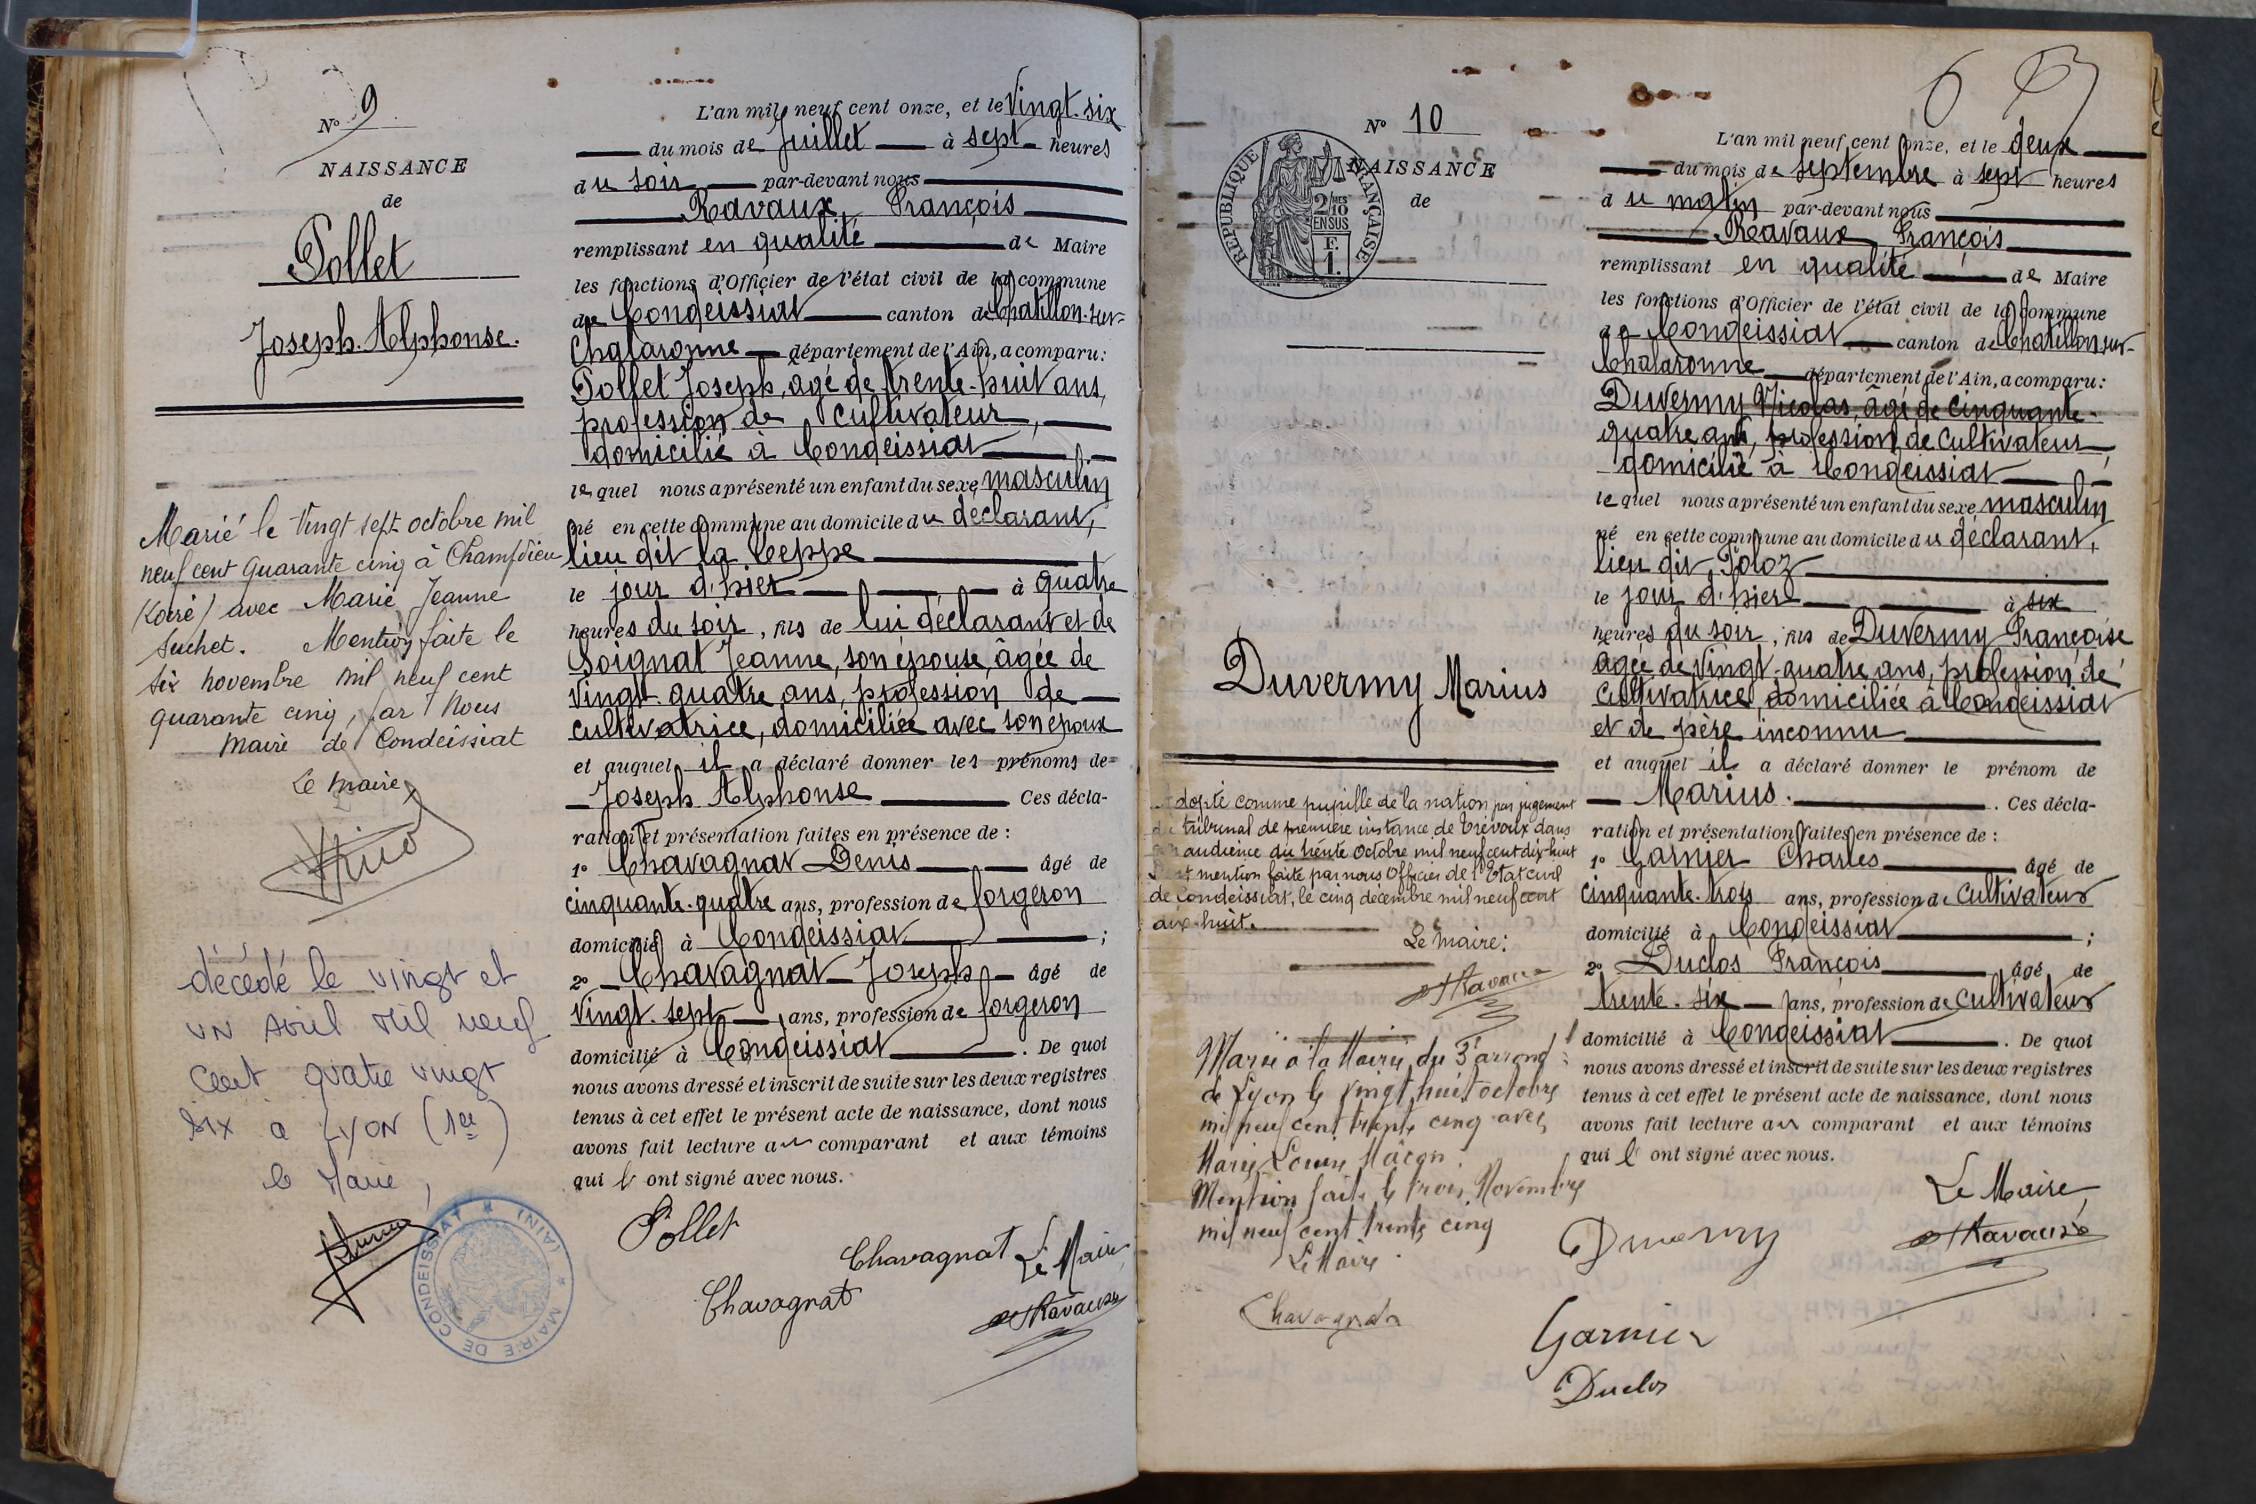 N° 9
NAISSANCE
de
Pollet
Joseph. Alphonse.
Marié le vingt sept octobre mil
neuf cent quarante cinq à Champdieu
(Loire) avec Marie Jeanne
Suchet. Mention faite le
six novembre mil neuf cent
quarante cinq, par Nous
Maire de Condeissiat
Le Maire,
décédé le vingt et
un avril mil neuf
cent quatre vingt
six à LYON (1er)
le Maire,
MAIRIE DE CONDEISSIAT * (AIN) *
L'an mil neuf cent onze, et le vingt-six
du mois de Juillet à sept heures
du soir par-devant nous
Ravaux François
remplissant en qualité de Maire
les fonctions d'Officier de l'état civil de la commune
de Condeissiat canton de Chatillon-sur-
Chalaronne département de l'Ain, a comparu:
Pollet Joseph, âgé de trente-huit ans,
profession de cultivateur,
domicilié à Condeissiat
lequel nous a présenté un enfant du sexe masculin
né en cette commune au domicile du déclarant,
lieu dit la Ceppe
le jour d'hier à quatre
heures du soir, fils de lui déclarant et de
Soignat Jeanne, son épouse, âgée de
vingt-quatre ans, profession de
cultivatrice, domiciliée avec son époux
et auquel il a déclaré donner les prénoms de
Joseph Alphonse Ces décla-
ration et présentation faites en présence de :
1° Chavagnat Denis âgé de
cinquante-quatre ans, profession de forgeron
domicilié à Condeissiat ;
2° Chavagnat Joseph âgé de
vingt-sept ans, profession de forgeron
domicilié à Condeissiat. De quoi
nous avons dressé et inscrit de suite sur les deux registres
tenus à cet effet le présent acte de naissance, dont nous
avons fait lecture au comparant et aux témoins
qui l' ont signé avec nous.
Pollet
Chavagnat Le Maire,
Chavagnat
Ravaux
6
N° 10
NAISSANCE
de
RÉPUBLIQUE FRANÇAISE
2/10 MES
EN SUS
F.
1.
Duvermy Marius
Adopté comme pupille de la nation par jugement
du tribunal de première instance de Trévoux dans
son audience du trente Octobre mil neuf cent dix-huit
Dont mention faite par nous Officier de l'Etat civil
de Condeissiat, le cinq décembre mil neuf cent
dix-huit.
Le Maire:
Ravaux
Marié à la Mairie du 3e arrond
de Lyon le vingt huit octobre
mil neuf cent trente cinq avec
Marie Louise Mâcon.
Mention faite le trois Novembre
mil neuf cent trente cinq
Le Maire
Chavagnat
L'an mil neuf cent onze, et le deux
du mois de septembre à sept heures
du matin par-devant nous
Ravaux François
remplissant en qualité de Maire
les fonctions d'Officier de l'état civil de la Commune
de Condeissiat canton de Chatillon-sur-
Chalaronne département de l'Ain, a comparu:
Duvermy Nicolas, âgé de cinquante-
quatre ans, profession de cultivateur,
domicilié à Condeissiat
lequel nous a présenté un enfant du sexe masculin
né en cette commune au domicile du déclarant,
lieu dit Poloz
le jour d'hier à six
heures du soir, fils de Duvermy Françoise
âgée de vingt-quatre ans, profession de
cultivatrice, domiciliée à Condeissiat
et de père inconnu
et auquel il a déclaré donner le prénom de
Marius. Ces décla-
ration et présentation faites en présence de :
1° Garnier Charles âgé de
cinquante-trois ans, profession de cultivateur
domicilié à Condeissiat ;
2° Duclos François âgé de
trente-six ans, profession de cultivateur
domicilié à Condeissiat. De quoi
nous avons dressé et inscrit de suite sur les deux registres
tenus à cet effet le présent acte de naissance, dont nous
avons fait lecture au comparant et aux témoins
qui l' ont signé avec nous.
Le Maire,
Duvermy
Ravaux
Garnier
Duclos